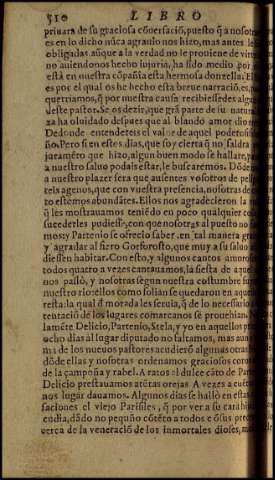 510 LIBRO
priuara de su graciosa cõuersació, puesto q̃ a nosotr
es en lo dicho nũca agrauio nos hizo, mas antes le
obligadas aũque a la verdad no le prouiene de virtu
no auiendonos hecho injuria, ha sido medio por
està en nuestra cõpañia esta hermosa donzella. El
es poe el qual os he hecho esta breue narració, es, pa
querriamos, q̃ por nuestra causa recibiessedes algun
deste pastor. Se os dezir, que grã parte de su natura
za ha oluidado despues que al blando amor dio
Dedonde entendereis el valor de aquel poderoso
ño. Pero si en estos dias, que so y cierta q̃ no saldra
juramẽto que hizo, algun buen modo se hallare, pa
a nuestro saluo podais estar, le buscaremos. Dõde
a nuestro plazer sera que ausentes vosotros de pel
teis agenos, que con vuestra presencia, nosotras de
to estemos abundãtes. Ellos nos agradecieron la
q̃ les mostrauamos teniẽdo en poco qualquier
sucederles pudiesse, con que nosotras al puesto no
mos: y Partenio se ofrecio saber en tal manera
y agradar al fiero Gorforosto, que muy a su saluo
diessen habitar. Con esto, y algunos cantos amoros
todos quatro a vezes cantauamos, la fiesta de aquel
nos passò, y nosotras segun nuestra costumbre
nuestro rio ellos como solian se quedaron en aquel
resta: la qual d' morada les seruia, q̃ de lo necessario
tentació de los lugares comarcanos se prouehian. N
lamẽte Delicio, Partenio, Stela, y yo en aquellos pr
ocho dias al lugar diputado no faltamos, mas aun
ma de los nueuos pastores acudierõ algunas otras
dõde ellas y nosotras ordenamos graciosos corros
de la çampoña y rabel. A ratos al dulce cãto de Part
Delicio prestauamos atẽtas orejas A vezes a cuẽt
nos lugar dauamos. Algunos dias se hallò en estas
saciones el viejo Parisiles, q̃ por ver a su cara hija
cudia, dãdo no pequeño cõtẽto a todos e õ sus pre
cerca de la veneració de los inmortales dioses, ma